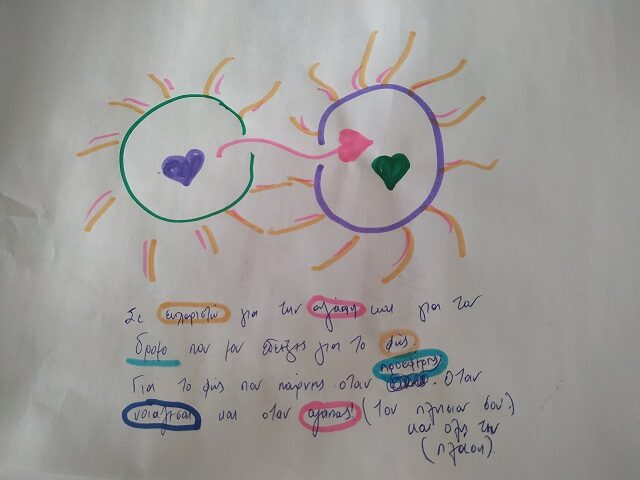 Σε ευχαριστώ για την αγάπη και για τον
δρομο που μου έδειξες για το φώς.
Για το φώς που παίρνης οταν προσφέρης. Οταν
νοιάζεσαι και οταν αγαπας! (Τον πλησιον σου!)
και ολη την
(πλαση).